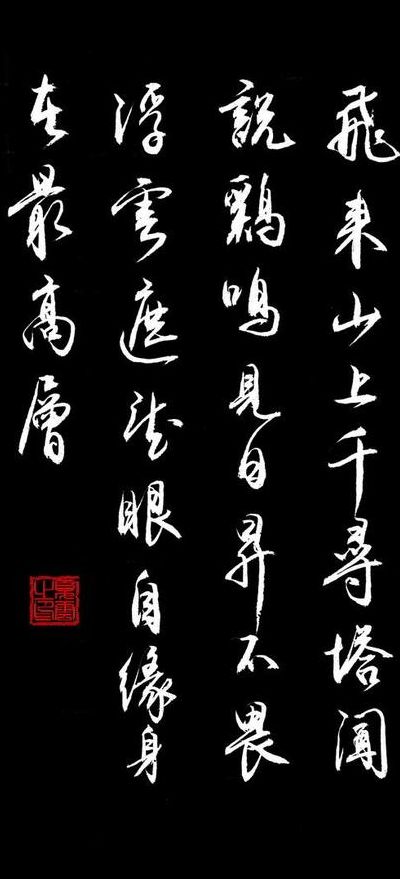 飛来山上千尋塔聞
説鷄鳴見日昇不畏
浮雲遮望眼自緣身
在最高層